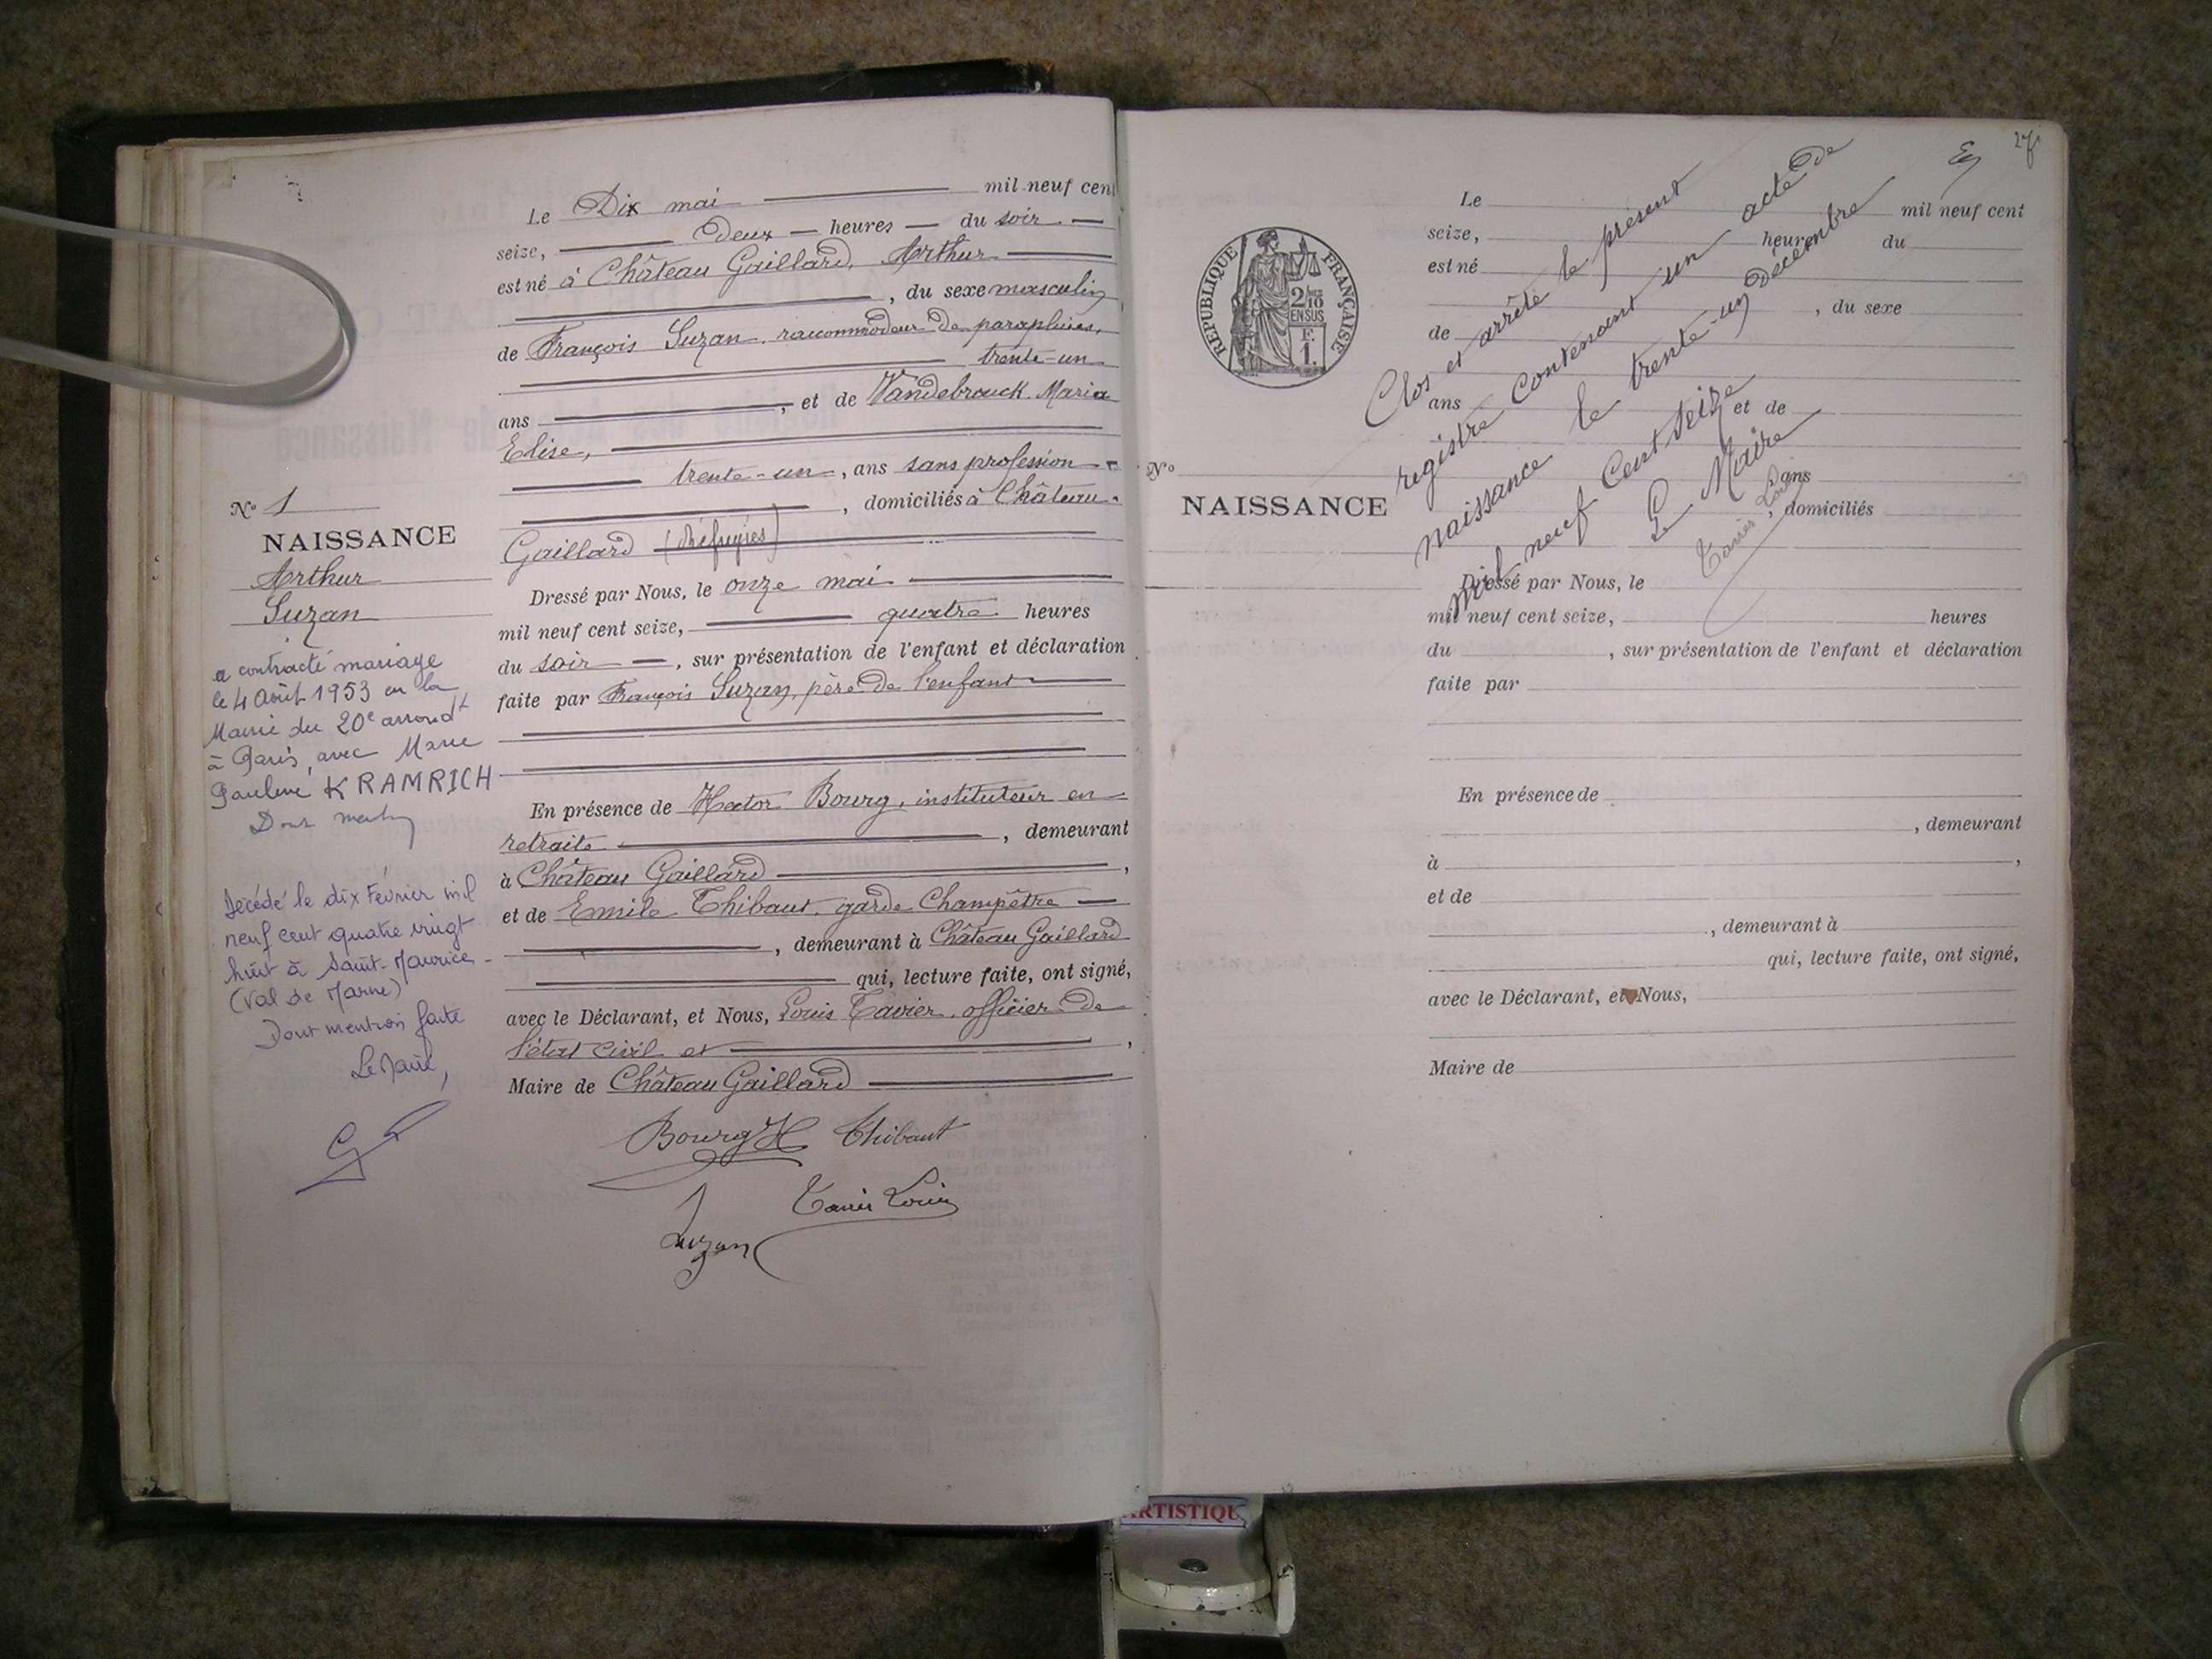 Le Dix mai mil neuf cent
seize, deux heures du soir
est né à Château Gaillard, Arthur
, du sexe masculin
de François Suzan, raccommodeur de parapluies,
trente-un
ans , et de Vandebrouck Maria
Elise,
trente-un, ans sans profession
, domiciliés à Château-
Gaillard (Réfugiés)
Dressé par Nous, le onze mai
mil neuf cent seize, quatre heures
du soir , sur présentation de l'enfant et déclaration
faite par François Suzan, père de l'enfant
En présence de Hector Bourg, instituteur en
retraite , demeurant
à Château Gaillard ,
et de Emile Thibaut, garde Champêtre
, demeurant à Château Gaillard
qui, lecture faite, ont signé,
avec le Déclarant, et Nous, Louis Tavier, officier de
l'état civil et ,
Maire de Château Gaillard
Bourg H Thibaut
Tavier Louis
Suzan
No 1
NAISSANCE
Arthur
Suzan
a contracté mariage
le 4 Août 1953 en la
Mairie du 20e arrondt
à Paris, avec Marie
Pauline KRAMRICH
Dont
Décédé le dix Février mil
neuf cent quatre vingt
huit à Saint-Maurice
(Val de Marne)
Dont mention faite
Le Maire,
27
RÉPUBLIQUE FRANÇAISE
2/10
EN SUS
F.
1.
No
NAISSANCE
Le mil neuf cent
seize, heures du
est né
, du sexe
de
ans et de
ans
, domiciliés
Dressé par Nous, le
mil neuf cent seize, heures
du , sur présentation de l'enfant et déclaration
faite par
En présence de
, demeurant
à ,
et de
, demeurant à
qui, lecture faite, ont signé,
avec le Déclarant, et Nous,
Maire de
Clos et arrêté le présent
registre contenant un acte de
naissance le trente-un Décembre
mil neuf Cent seize
Le Maire
Tavier Louis
ARTISTIQU